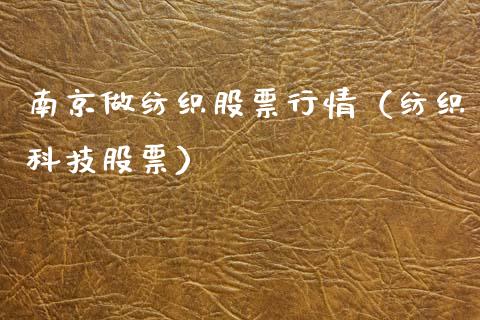 南京做纺织股票行情（纺织
科技股票）